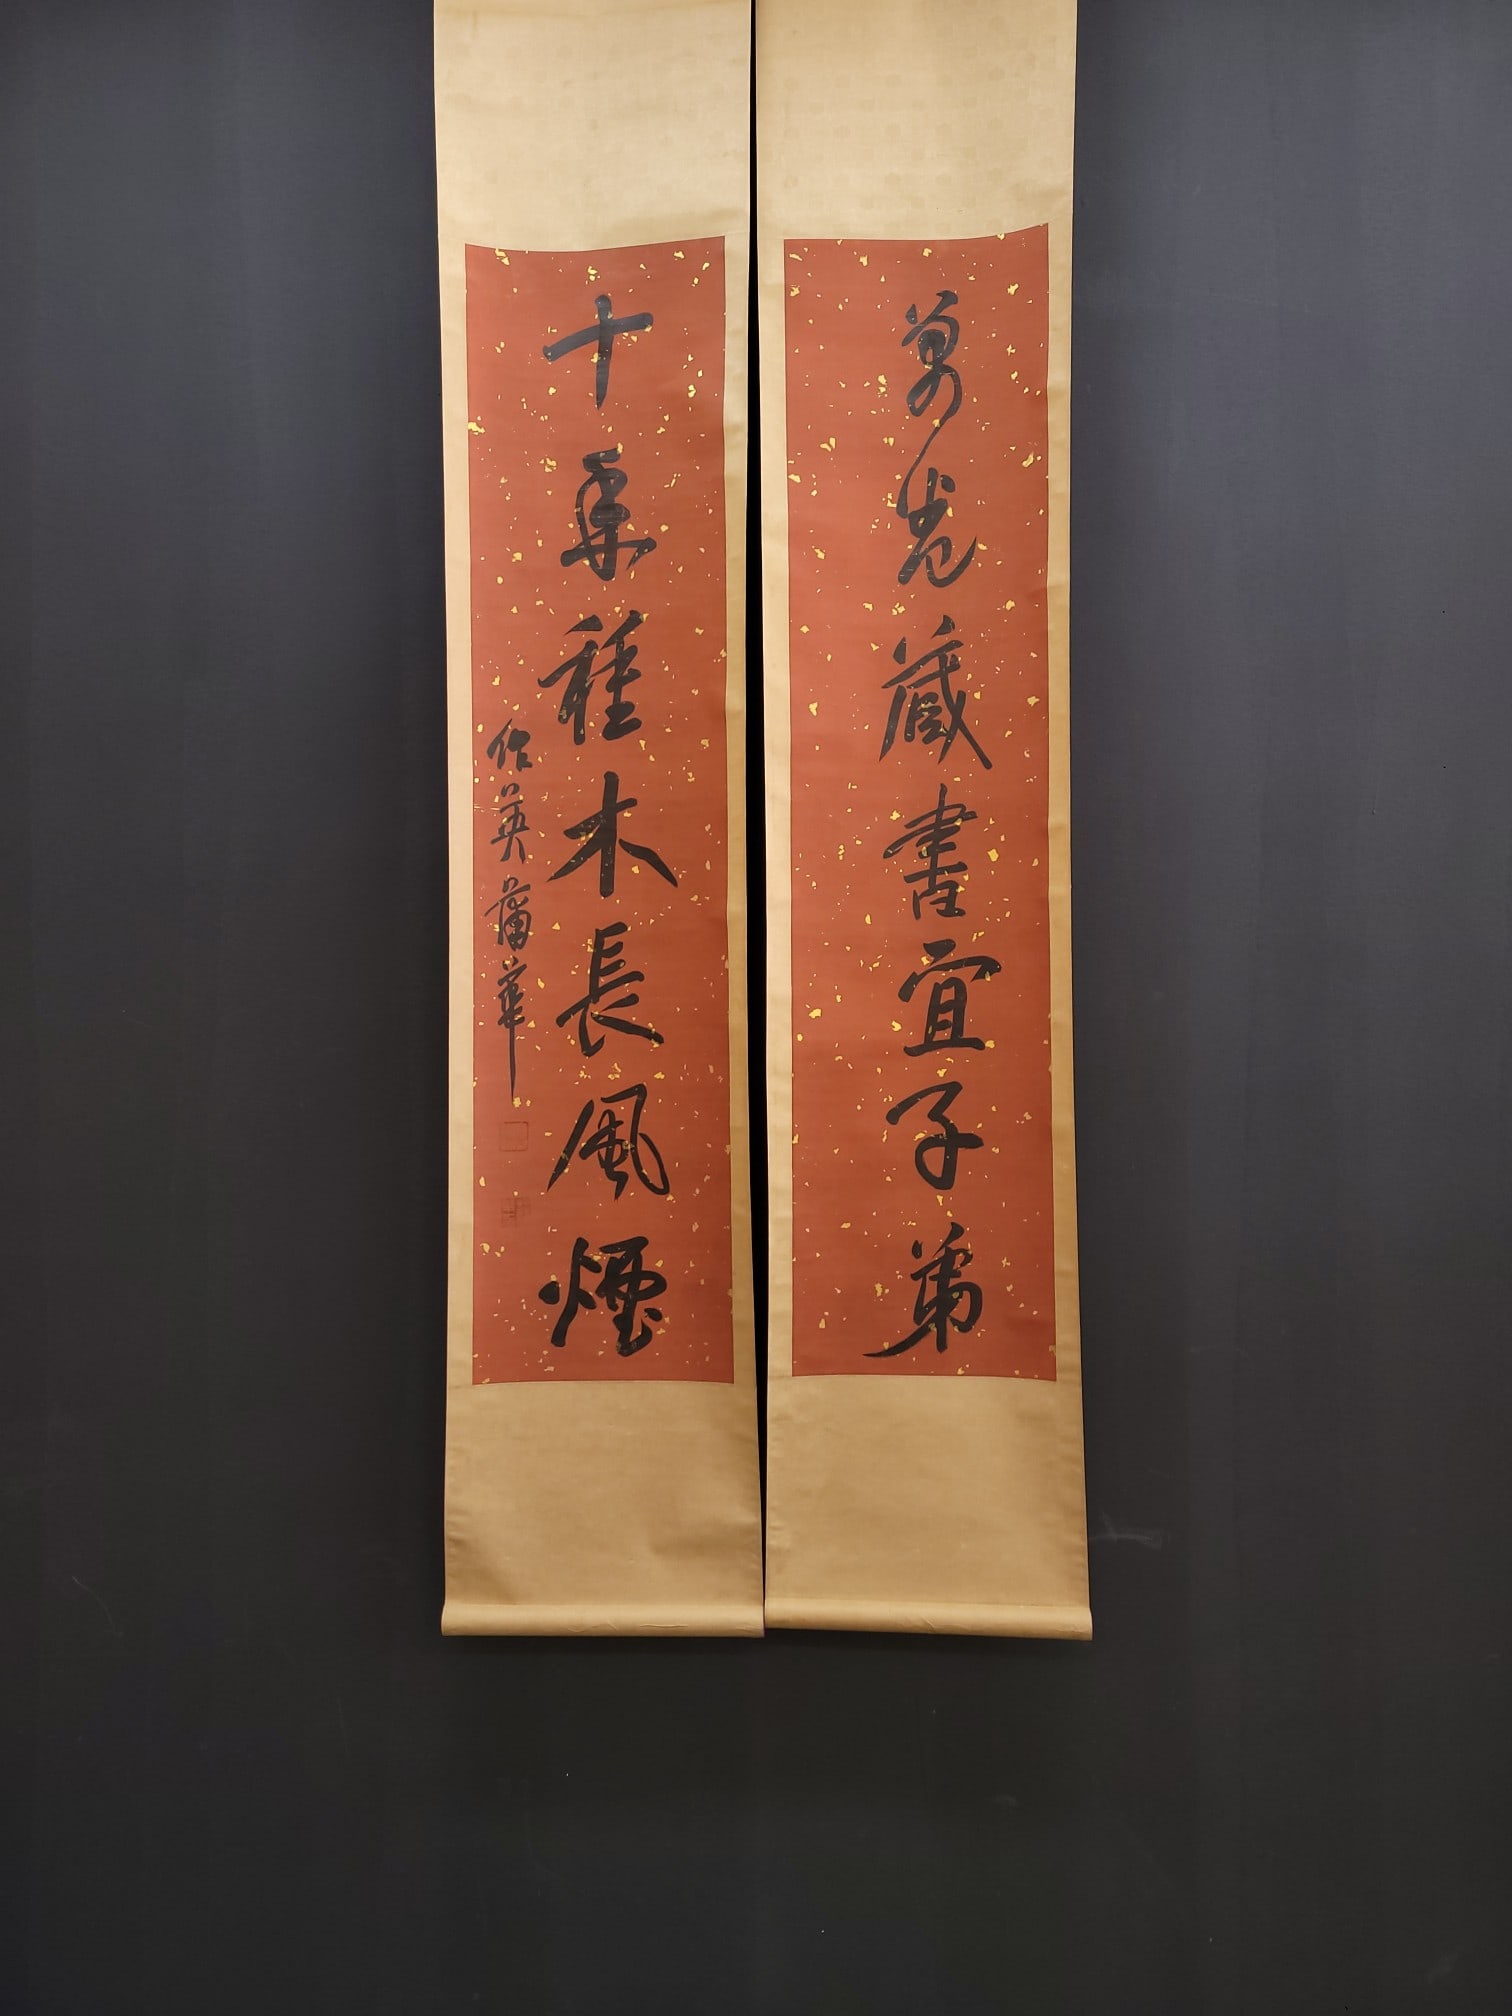 萬卷藏書宜子弟
十年種木長風煙
作英蒲華